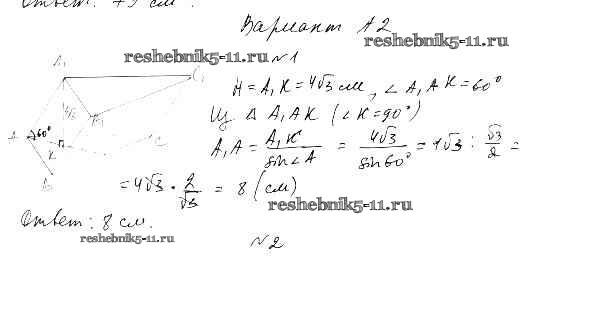 Ответ: 79 см.
Вариант А2
reshebnik5-11.ru
reshebnik5-11.ru
№1
A₁
C₁
4√3
B₁
A
60°
K
C
B
H = A₁K = 4√3 см, ∠A₁AK = 60°
Из Δ A₁AK (∠K = 90°)
A₁A = A₁K / sin∠A = 4√3 / sin60° = 4√3 : √3/2 =
= 4√3 · 2/√3 = 8 (см)
reshebnik5-11.ru
Ответ: 8 см.
reshebnik5-11.ru
№2